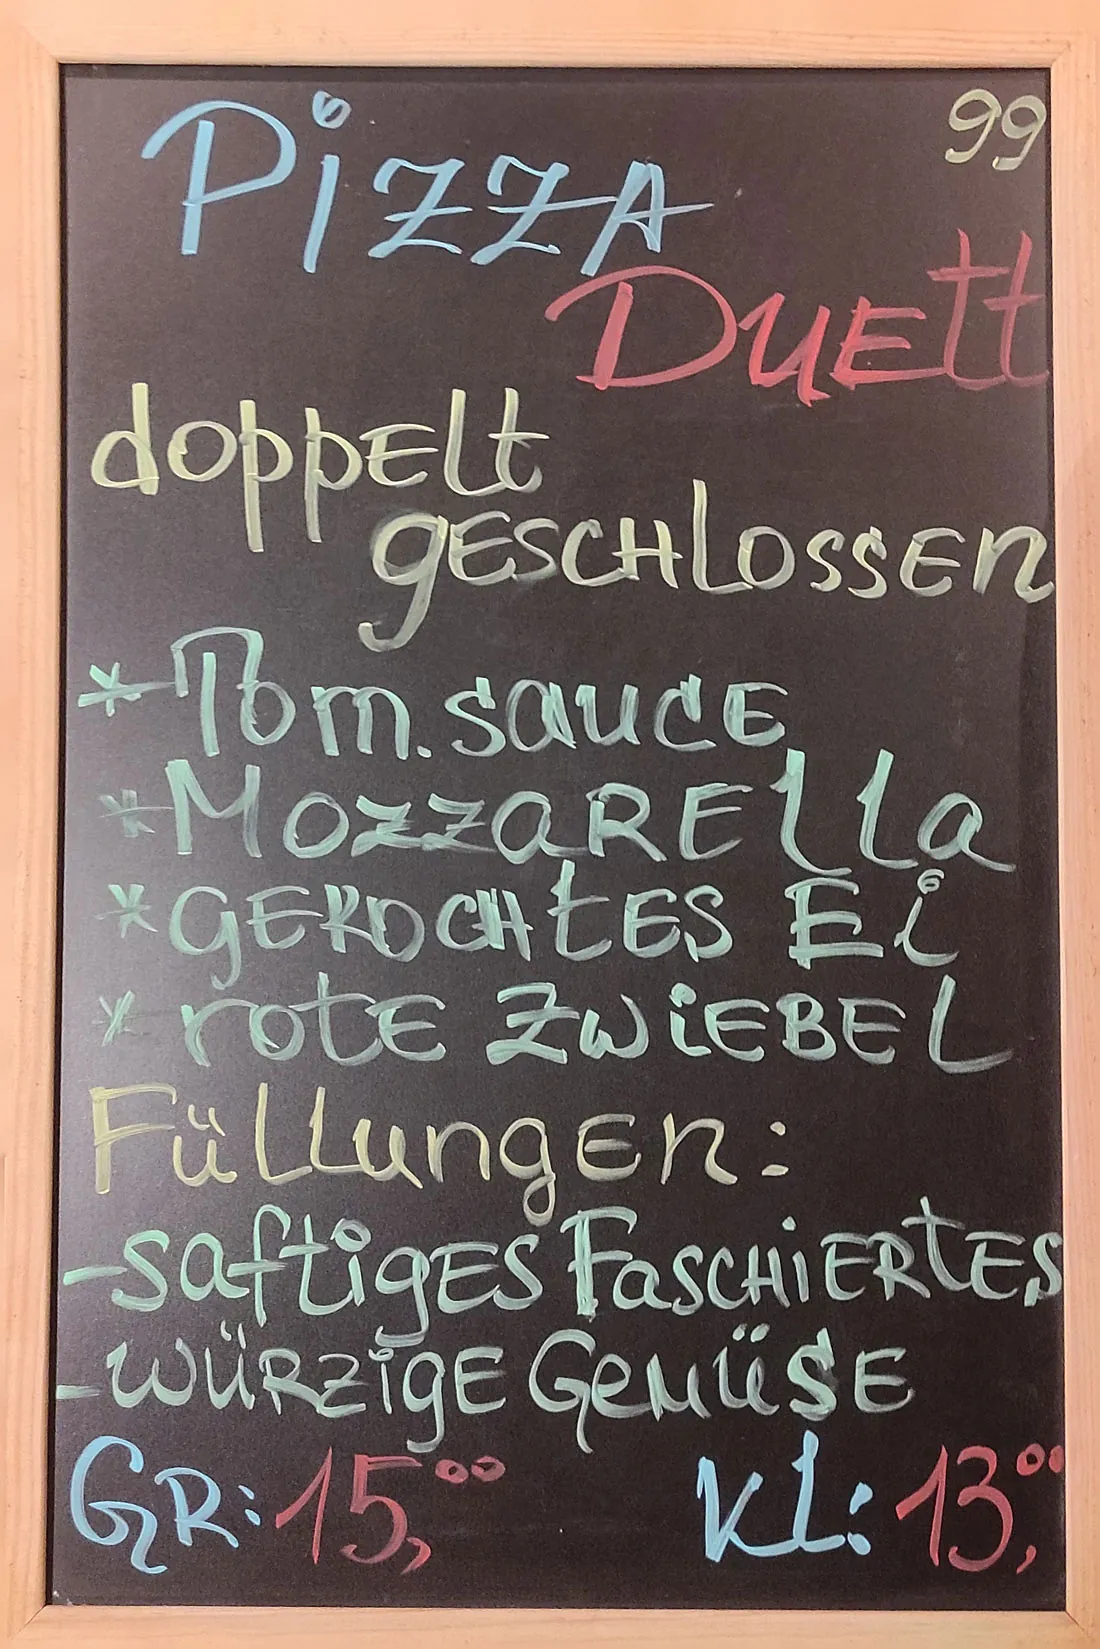 Pizza 99
Duett
doppelt
geschlossen
* Tom. sauce
* Mozzarella
* gekochtes Ei
* rote Zwiebel
Füllungen:
- saftiges Faschiertes
- würzige Gemüse
GR: 15,00 KL: 13,00